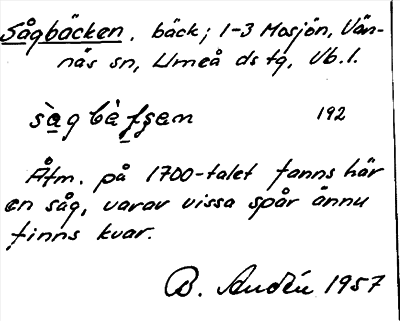 Sågbäcken, bäck; 1-3 Mosjön, Vän-
näs sn, Umeå ds tg, Vb. l.
192
Åtm. på 1700-talet fanns här
en såg, varav vissa spår ännu
finns kvar.
B. Audén 1957